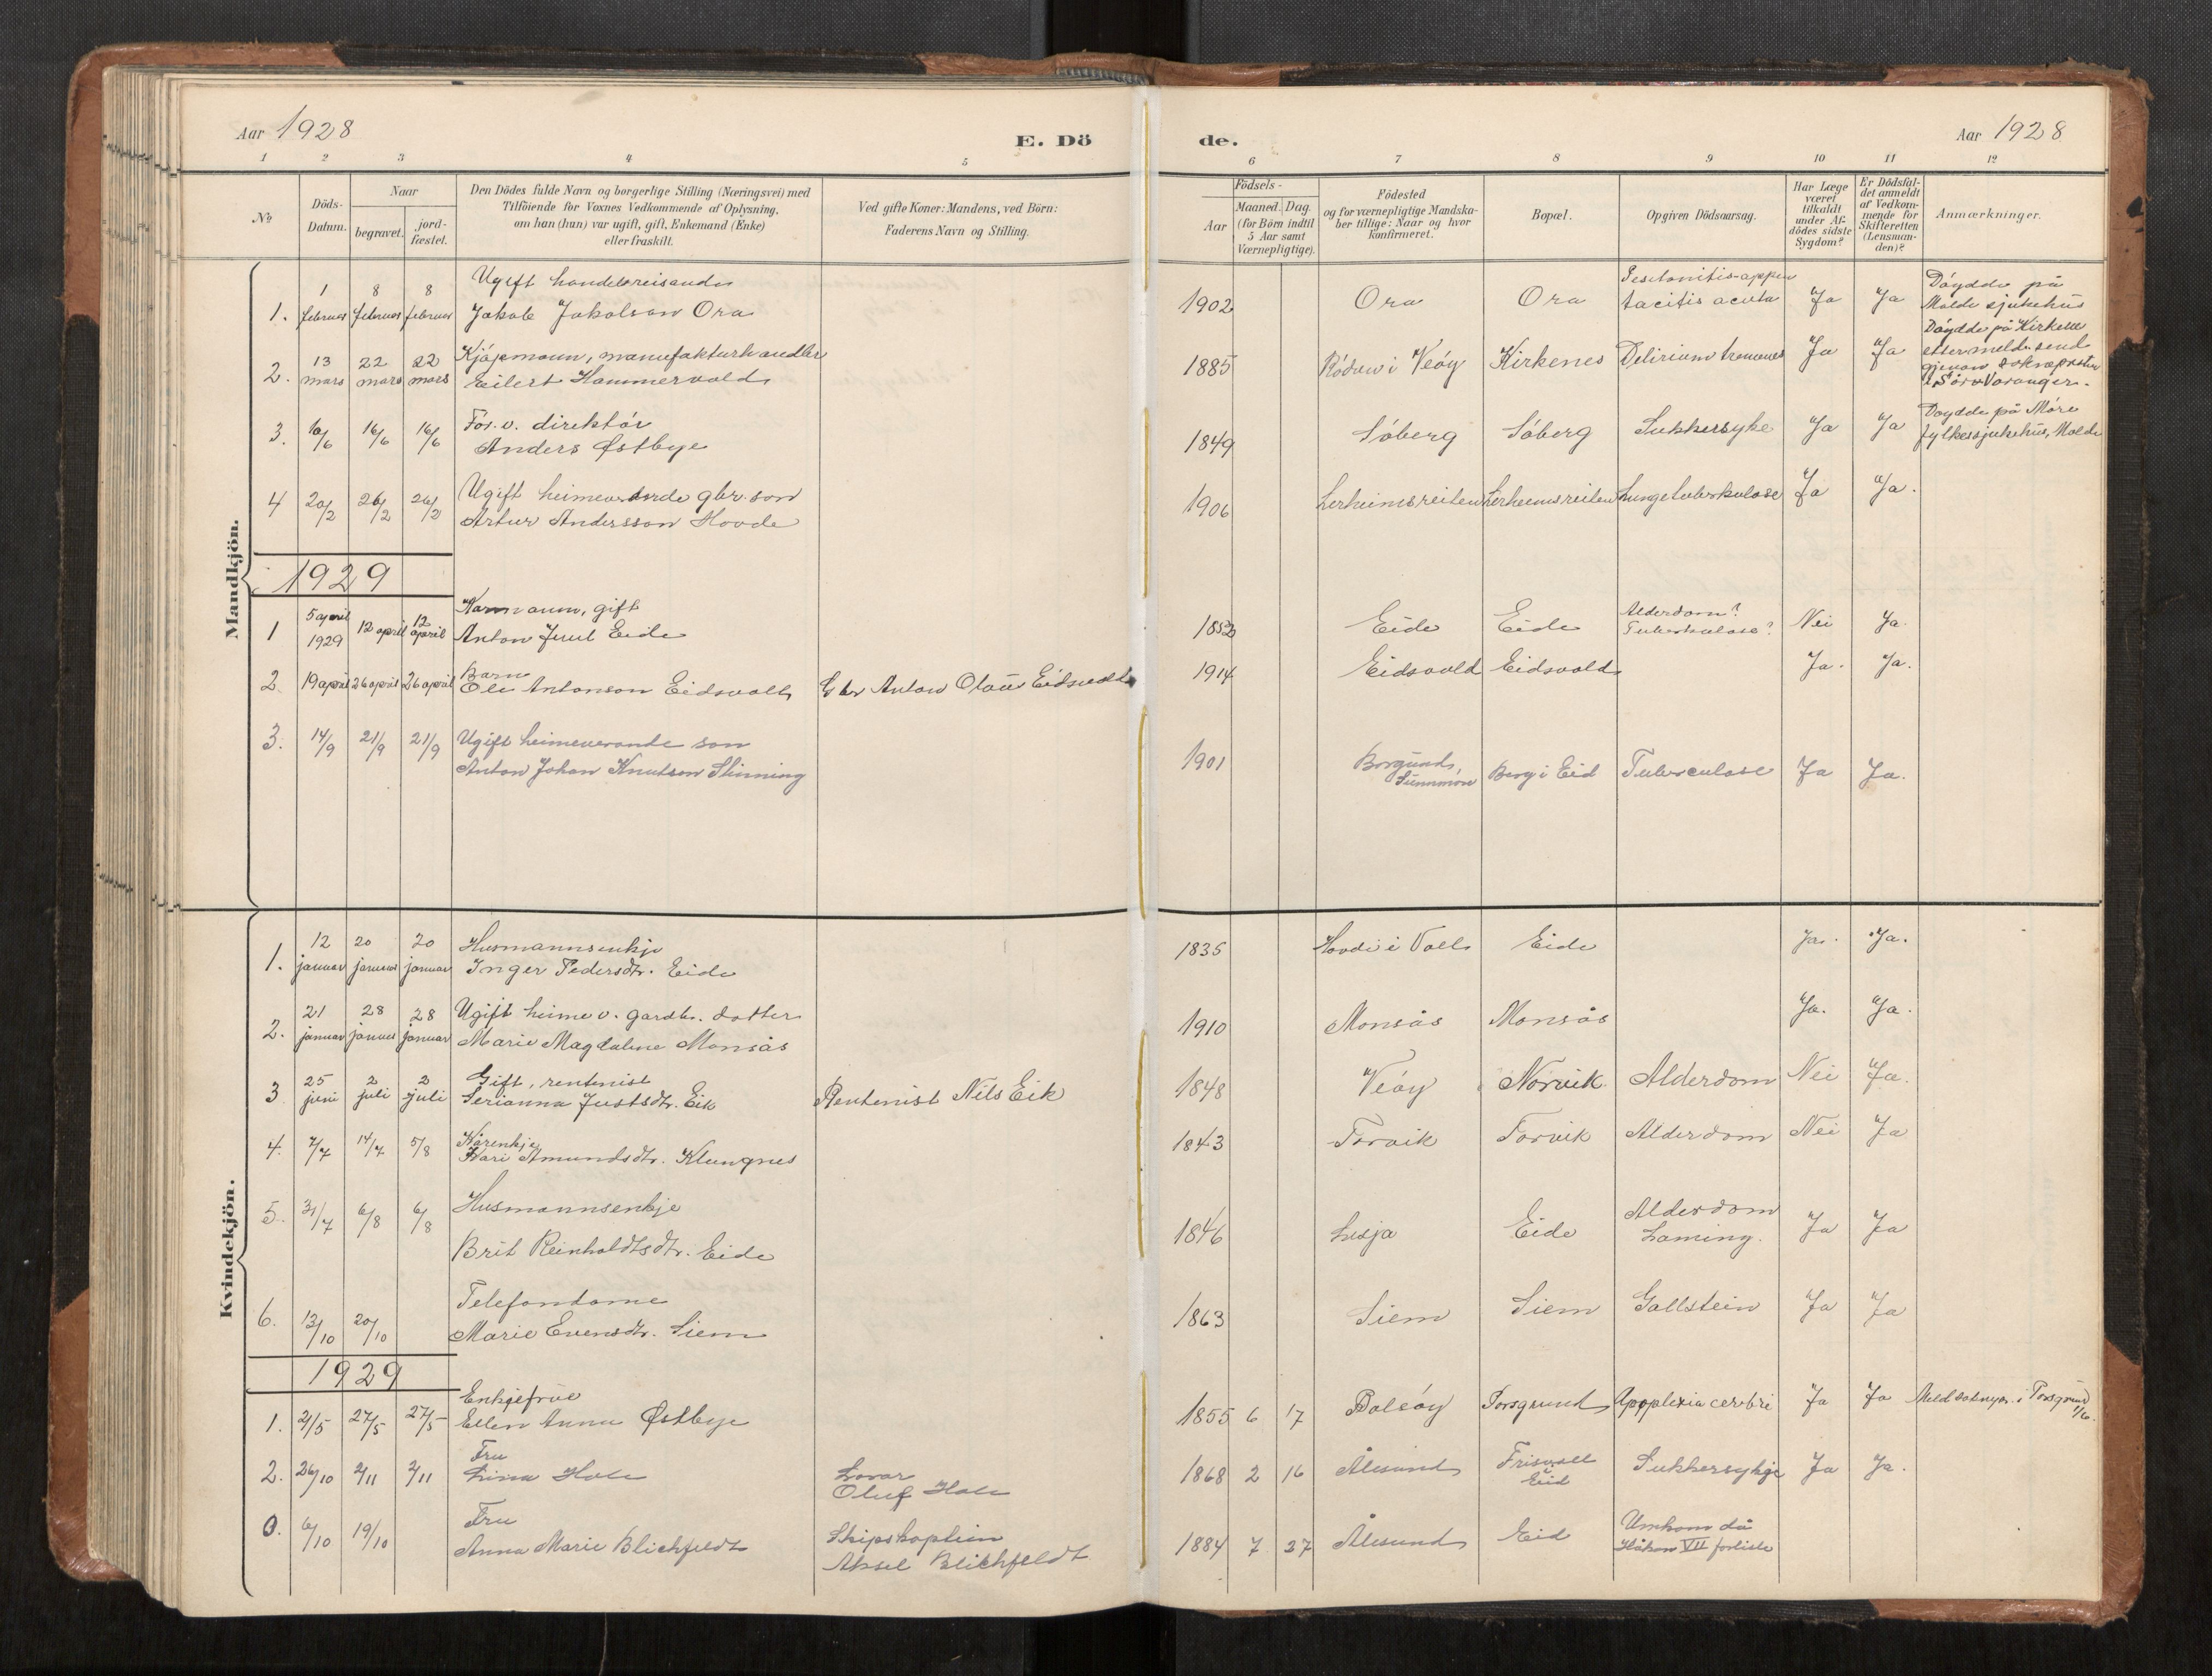 Aar 1928
E. Dö
de.
Aar 1928
1 2 3 4 5 6 7 8 9 10 11 12
№
Döds-
Datum.
Naar
begravet.
jord-
fæstet.
Den Dödes fulde Navn og borgerlige Stilling (Næringsvei) med
Tilföiende for Voxnes Vedkommende af Oplysning,
om han (hun) var ugift, gift, Enkemand (Enke)
eller fraskilt.
Ved gifte Koner: Mandens, ved Börn:
Faderens Navn og Stilling.
Födsels-
Aar
Maaned. Dag.
(for Börn indtil
5 Aar samt
Værnepligtige).
Födested
og for værnepligtige Mandska-
ber tillige: Naar og hvor
konfirmeret.
Bopæl.
Opgiven Dödsaarsag.
Har Læge
været
tilkaldt
under Af-
dödes sidste
Sygdom?
Er Dödsfal-
det anmeldt
af Vedkom-
mende for
Skifteretten
(Lensman-
den)?
Anmærkninger.
Mandkjön.
1. 1 februar 8 februar 8 februar Ugift handelsreisande
Jakob Jakobson Ora 1902 Ora Ora tacitis acuta Ja Ja Döydde på
Molde sjukehus
2. 13 mars 22 mars 22 mars Kjöpmann, manufakturhandler
Eilert Hammervold 1885 Rödven i Veöy Kirkenes Delirium tremenes Ja Ja Döydde på Kirkene
etter melding send
gjenom sokneprsten
i Sör-Varanger.
3. 10/6 16/6 16/6 For. v. direktör
Anders Østbye 1849 Söberg Söberg Sukkersyke Ja Ja Döydde på Möre
fylkessjukehus, Molde
4 20/2 26/2 26/2 Ugift heimeverande gbr. son
Artur Andersson Hovde 1906 Lerheimsreiten Lerheimsreiten Lungetuberkulose Ja Ja.
1929
1 5 april 1929 12 april 12 april Kårmann, gift
Anton Juul Eide 1852 Eide Eide Alderdom?
Tuberkulose? Nei Ja.
2. 19 april 26 april 26 april Barn
Ole Antonson Eidsvoll Gbr Anton Olaus Eidsvoll 1914 Eidsvold Eidsvold Ja. Ja.
3. 14/9 21/9 21/9 Ugift heimeverande son
Anton Johan Knutson Slinning 1901 Borgund,
Sunnmöre Berg i Eid Tuberculose Ja Ja.
Kvindekjön.
1. 12 januar 20 januar 20 januar Husmannsenkje
Inger Pedersdtr. Eide 1835 Hovde i Voll Eide Ja. Ja.
2. 21 januar 28 januar 28 januar Ugift heimev. gardbr. dotter
Marie Magdalene Monsås 1910 Monsås Monsås Ja. Ja.
3 25 juni 2 juli 2 juli Gift, rentenist
Serianna Justsdtr. Eik Rentenist Nils Eik 1848 Veöy Norvik Alderdom Nei Ja.
4. 7/7 14/7 5/8 Kårenkje
Kari Amundsdtr. Klungnes 1843 Torvik Torvik Alderdom Nei Ja
5. 31/7 6/8 6/8 Husmannsenkje
Brit Reinholdtsdtr. Eide 1846 Lesja Eide Alderdom
Laming. Ja Ja
6. 13/10 20/10 Telefondame
Marie Evensdtr. Siem 1863 Siem Siem Gallstein Ja Ja
1929
1. 21/5 27/5 27/5 Enkjefrue
Ellen Anna Østbye 1855 6 17 Bolsöy Porsgrund Apoplexia cerebri Ja Ja Meld soknepr. i Porsgrund 1/6.
2. 26/10 2/11 2/11 Fru
Lina Hole Lovar
Oluf Hole 1868 2 16 Ålesund Frisvoll
i Eid Sukkersykje Ja Ja.
0. 6/10 19/10 Fru
Anna Marie Blichfeldt Skipskaptein
Aksel Blichfeldt 1884 7 27 Ålesund Eid Umkom då
Håkon VII forliste